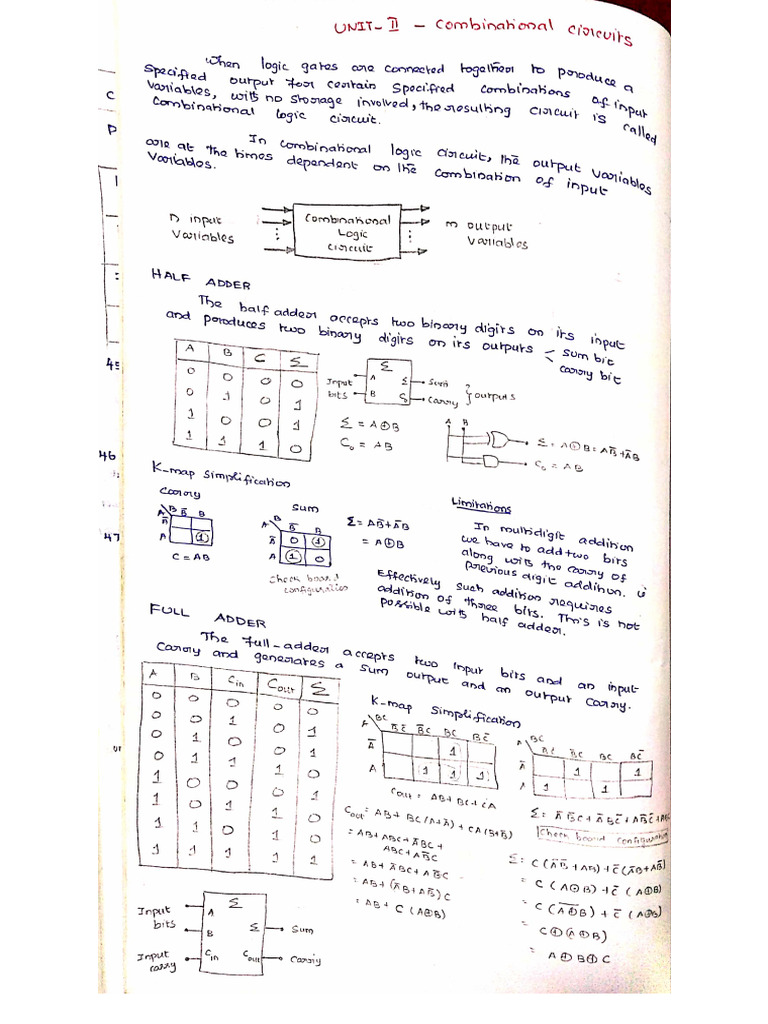 UNIT-II - Combinational Circuits
When logic gates are connected together to produce a
Specified output for certain Specified combinations of input
variables, with no storage involved, the resulting circuit is called
Combinational logic circuit.
In combinational logic circuit, the output variables
are at the times dependent on the combination of input
Variables.
n input
Variables
Combinational
Logic
circuit
m output
Variables
HALF ADDER
The half adder accepts two binary digits on its input
and produces two binary digits on its outputs < sum bit
carry bit
A B C Σ
0 0 0 0
0 1 0 1
1 0 0 1
1 1 1 0
Input
bits
A
B
Σ
Σ
C₀
Sum
Carry
} outputs
Σ = A⊕B
C₀ = AB
A B
Σ = A⊕B = AB̅+A̅B
C₀ = AB
K-map Simplification
Carry
A B B̅ B
A̅
A 1
C = AB
Sum
A B B̅ B
A̅ 0 1
A 1 0
Check board
configuration
Σ = AB̅+A̅B
= A⊕B
Limitations
In multidigit addition
we have to add two bits
along with the carry of
previous digit addition.
Effectively such addition requires
addition of three bits. This is not
possible with half adder.
FULL ADDER
The full-adder accepts two input bits and an input
Carry and generates a sum output and an output Carry.
A B Cin Cout Σ
0 0 0 0 0
0 0 1 0 1
0 1 0 0 1
0 1 1 1 0
1 0 0 0 1
1 0 1 1 0
1 1 0 1 0
1 1 1 1 1
K-map Simplification
A BC B̅C̅ B̅C BC BC̅
A̅ 1
A 1 1 1
Cout = AB+BC+CA
Cout = AB+BC(A+A̅)+CA(B+B̅)
= AB+ABC+A̅BC+
ABC+AB̅C
= AB+A̅BC+AB̅C
= AB+(A̅B+AB̅)C
= AB+C(A⊕B)
A BC B̅C̅ B̅C BC BC̅
A̅ 1 1
A 1 1
Σ = A̅B̅C+A̅BC̅+AB̅C̅+
Check board configuration
Σ = C(A̅B̅+AB)+C̅(A̅B+AB̅)
= C(A⊙B)+C̅(A⊕B)
= C(A⊕B)̅+C̅(A⊕B)
= C⊕(A⊕B)
= A⊕B⊕C
Input
bits
Input
carry
A
B
Cin
Σ
Σ
Cout
Sum
Carry
C
P
45
46
47